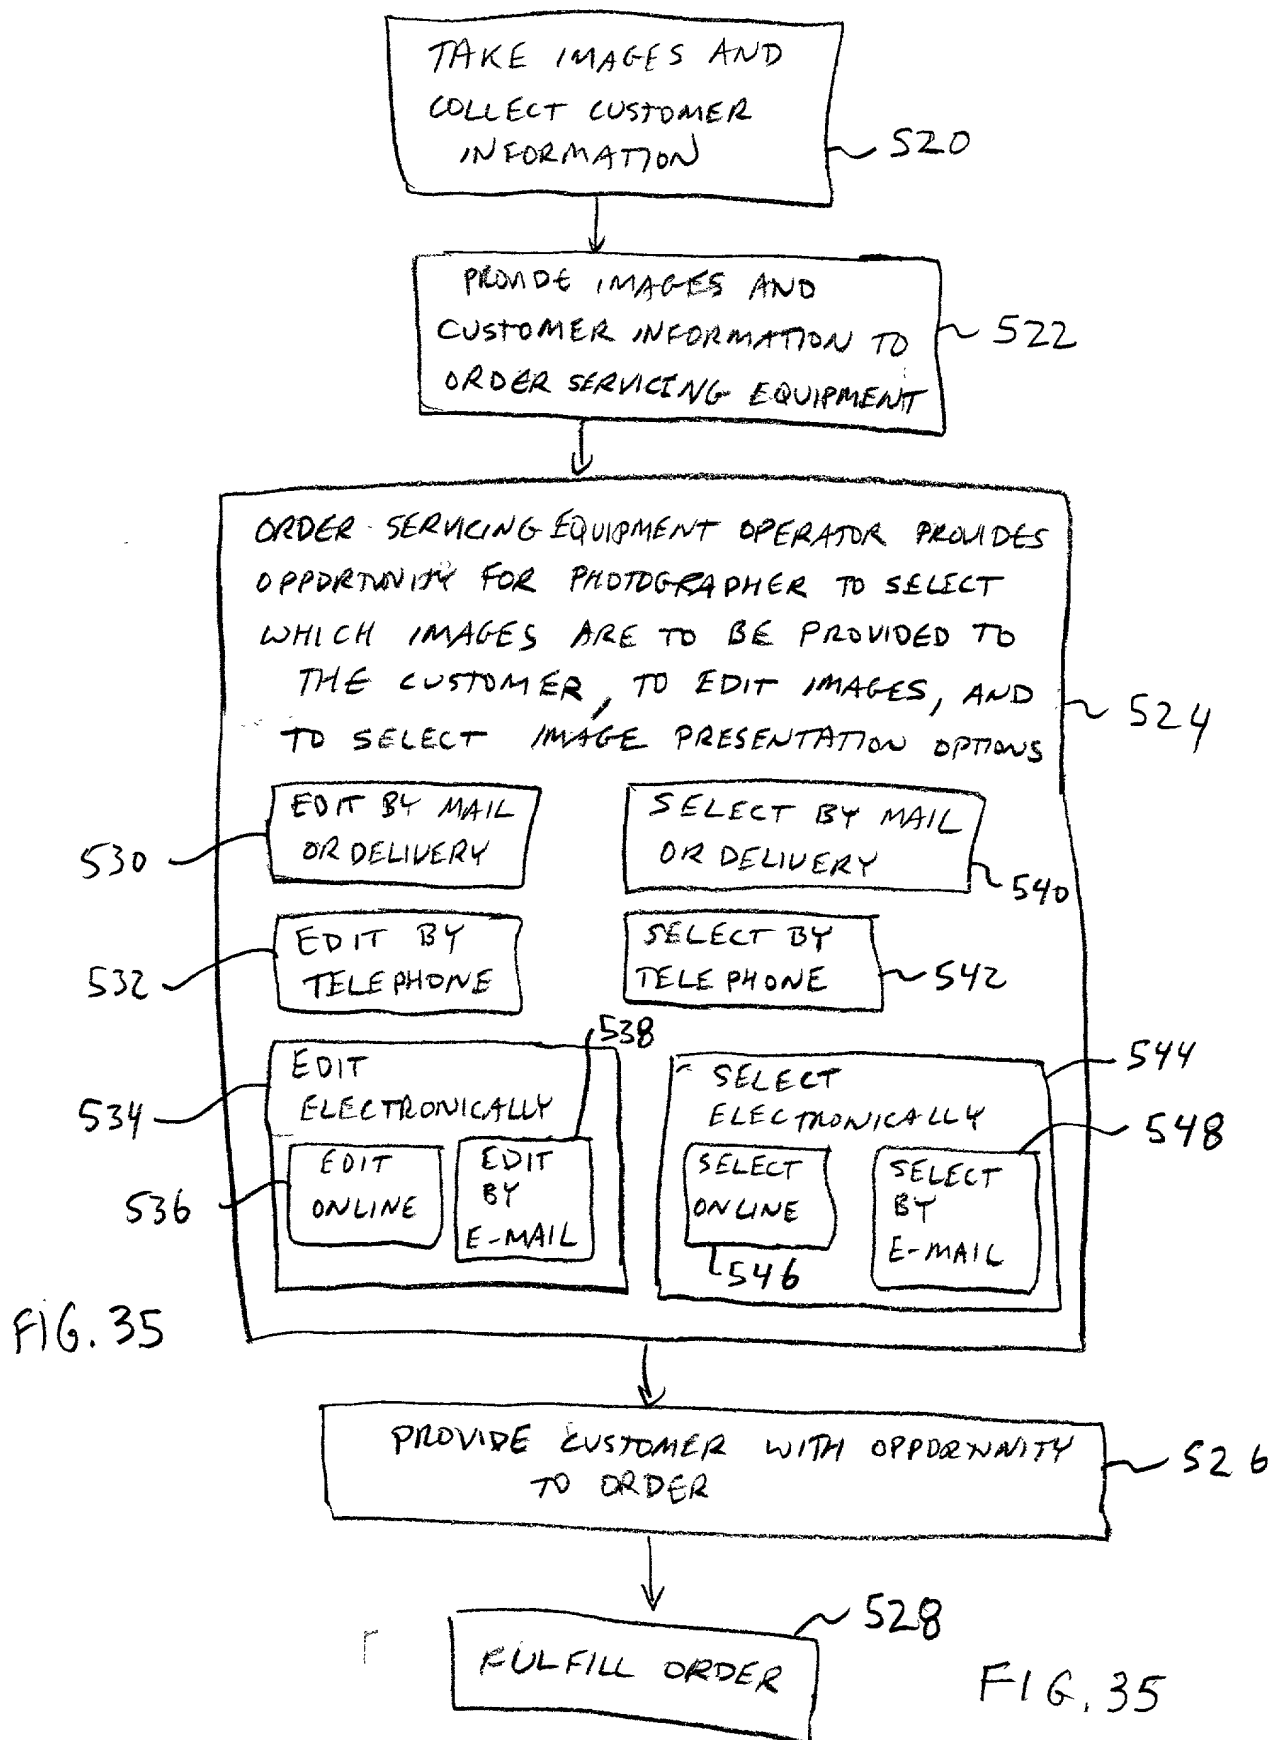 TAKE IMAGES AND
COLLECT CUSTOMER
INFORMATION
520
PROVIDE IMAGES AND
CUSTOMER INFORMATION TO
ORDER SERVICING EQUIPMENT
522
ORDER SERVICING EQUIPMENT OPERATOR PROVIDES
OPPORTUNITY FOR PHOTOGRAPHER TO SELECT
WHICH IMAGES ARE TO BE PROVIDED TO
THE CUSTOMER, TO EDIT IMAGES, AND
TO SELECT IMAGE PRESENTATION OPTIONS
524
EDIT BY MAIL
OR DELIVERY
530
SELECT BY MAIL
OR DELIVERY
540
EDIT BY
TELEPHONE
532
SELECT BY
TELEPHONE
542
EDIT
ELECTRONICALLY
534
538
EDIT
ONLINE
536
EDIT
BY
E-MAIL
SELECT
ELECTRONICALLY
544
548
SELECT
ONLINE
546
SELECT
BY
E-MAIL
FIG. 35
PROVIDE CUSTOMER WITH OPPORTUNITY
TO ORDER
526
FULFILL ORDER
528
FIG. 35